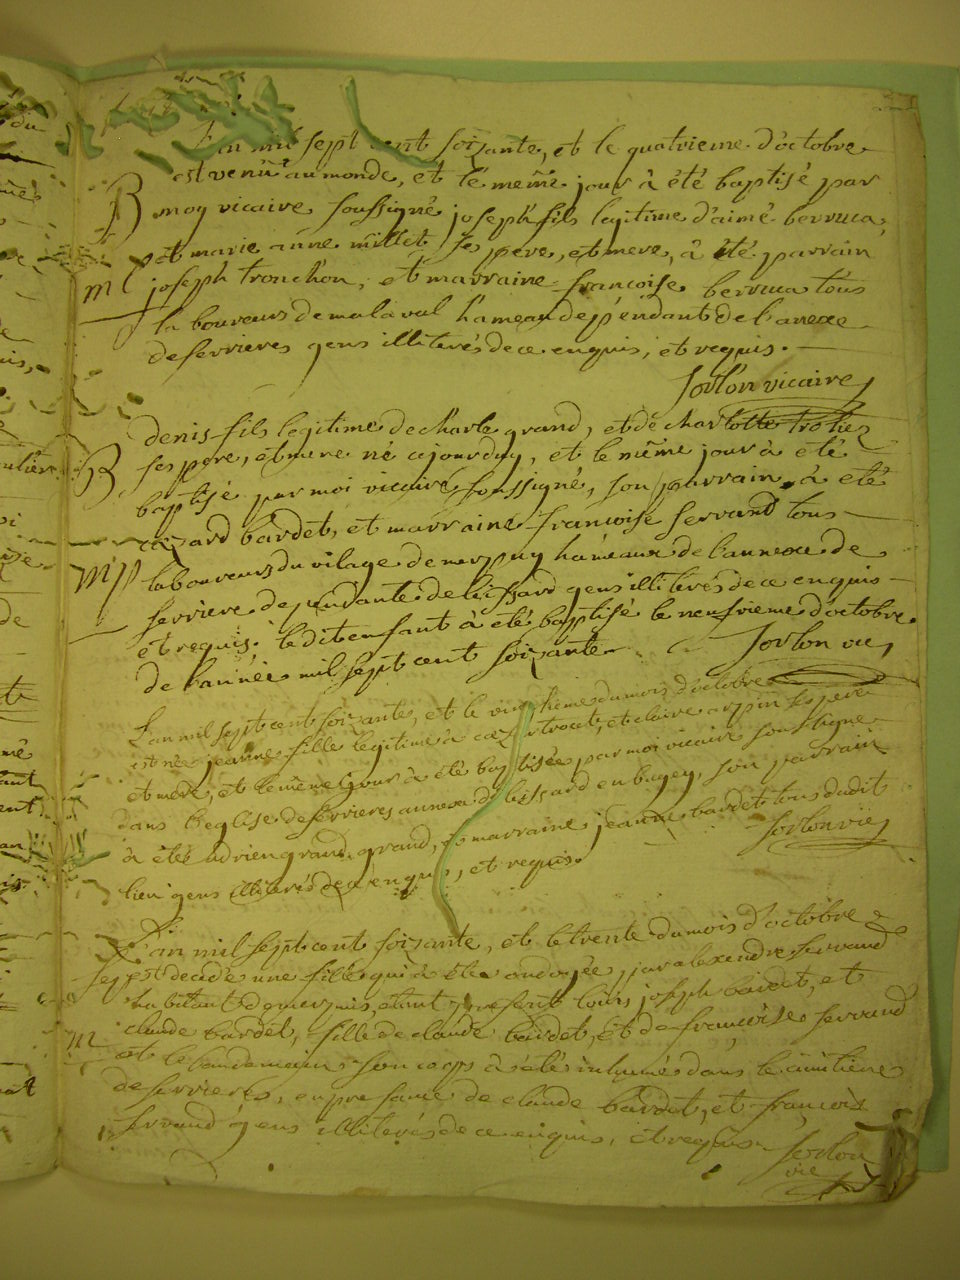 L'an mil sept cent soixante, et le quatrieme d'octobre
est venû au monde, et le même jour à été baptisé par
B moy vicaire soussigné joseph fils legitime d'aimé berruca,
et marie anne millet ses pere, et mere, à été parrain
ml joseph tronchon, et marraine françoise berruca tous
laboureurs de malaval hameau dependant de l'anexe
de serrieres gens illiterés de ce enquis, et requis.
Sorlon vicaire
denis fils legitime de charle grand, et de charlotte
B ses pere, et mere né cejourduy, et le même jour à été
baptisé par moi vicaire soussigné, son parrain à été
cezard bardet, et marraine françoise servand tous
mp laboureurs du vilage de merpuy hameaux de l'annexe de
serriere dependante de leissard gens illiterés de ce enquis
et requis. ledit enfant à été baptisé le neufvieme d'octobre
de l'année mil sept cent soixante. Sorlon vic
L'an mil sept cent soixante, et le du mois d'octobre
est née jeanne fille legitime à et claire arpin ses pere
et mere, et le même jour à été baptisée par moi vicaire soussigné
dans l'eglise de serrieres annexe de leissard en bugey, son parrain
à été adrien grand, et marraine jeanne bardet tous dudit
lieu gens illiterés de ce enquis, et requis. Sorlon vic
L'an mil sept cent soixante, et le trente du mois d'octobre
est decedé une fille qui à été ondoyée par alexendre servand
habitant de merpuis, etant present louis joseph bardet, et
m claude bardet, fille de claude bardet, et de françoise servand
et le landemain son corps à été inhumé dans le cimitiere
de serrieres, en presance de claude bardet, et françois
servand gens illiterés de ce enquis, et requis. Sorlon
vic